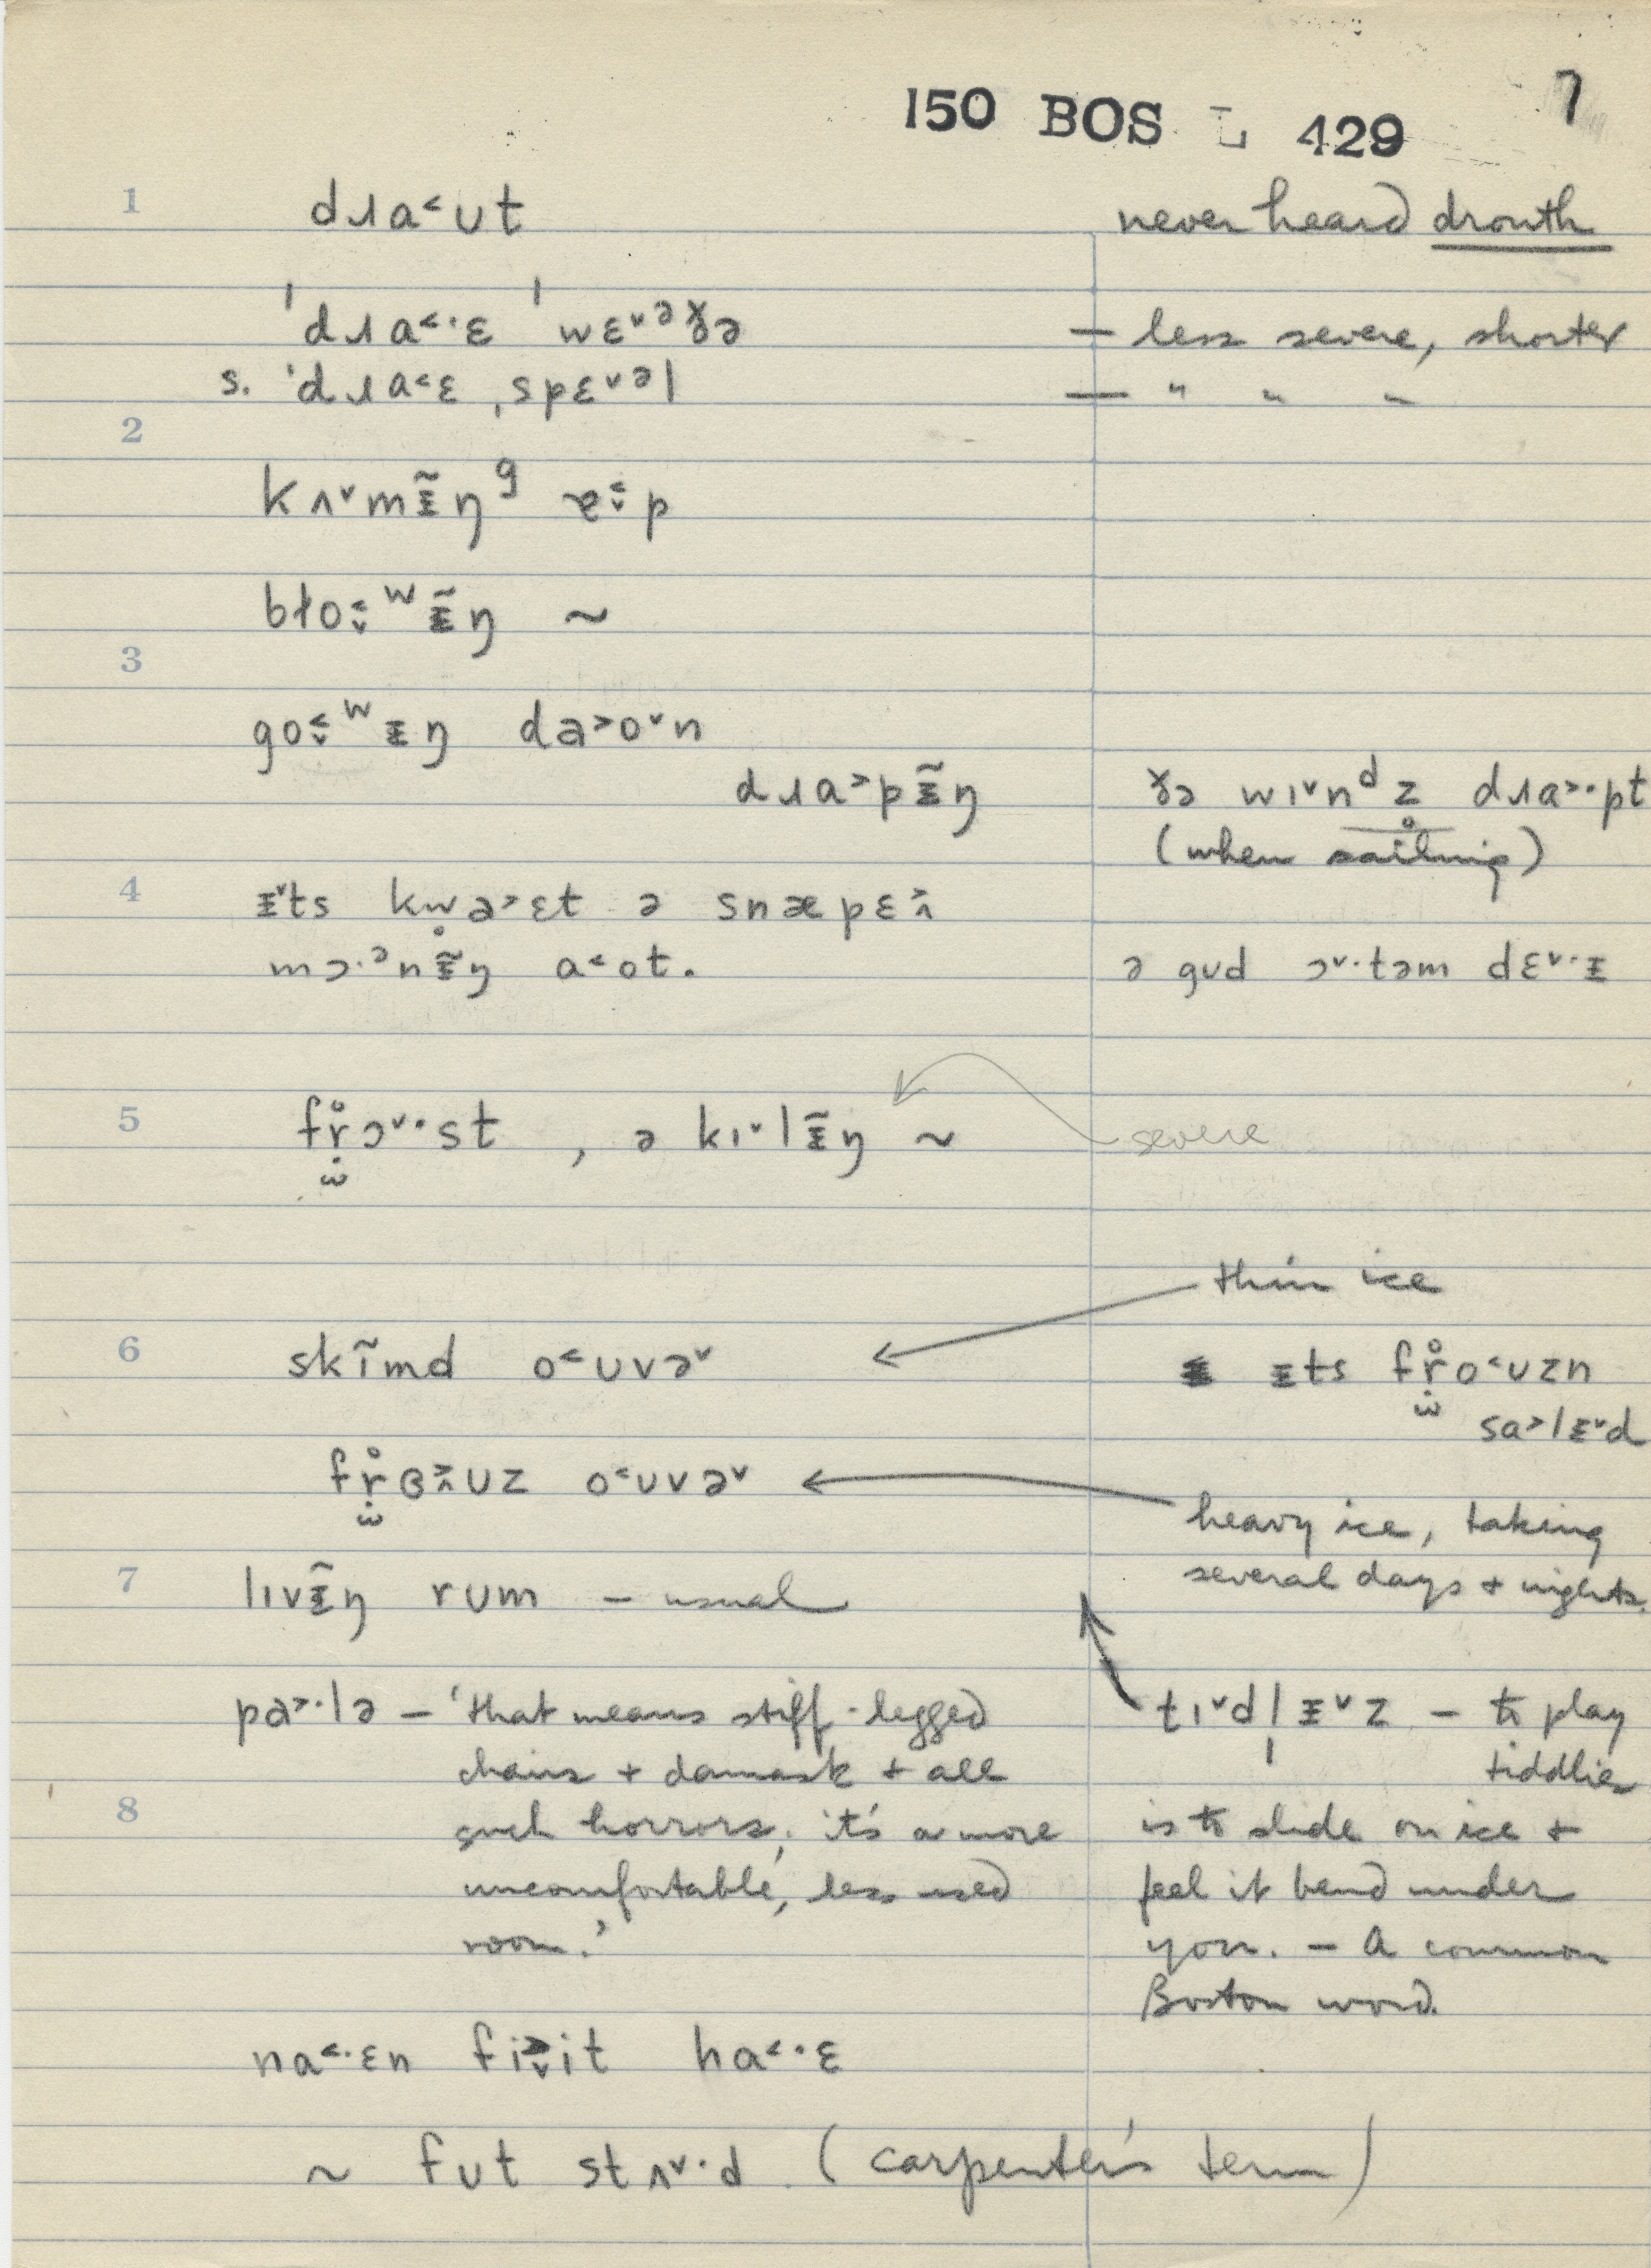 150 BOS L 429 7
1 dɹa˂ʊt never heard drouth
ˈdɹa˂·ɛ ˈwɛ˅ᵊɣə — less severe, shorter
s. ˈdɹa˂ɛ ˌspɛ˅ᵊl — " " "
2
kʌ˅mɪ̵̃ŋᵍ
bɫo˂˅ʷɪ̵̃ŋ ~
3
go˂˅ʷɪ̵ŋ da˃o˅n
dɹa˃pɪ̵̃ŋ ɣə wɪ˅nᵈz̥ dɹa˃·pt
(when sailing)
4 ɪ̵˅ts kw̥a˃ɛt ə snæpɛ˄˃
mɔ·ᵊnɪ̵̃ŋ a˂ot. ə gʊd ɔ˅·təm dɛ˅·ɪ̵
5 fr̥ɔ˅·st , ə kɪ˅lɪ̵̃ŋ ~ severe
thin ice
6 skĩmd o˂ʊvə˅ ɪ̵ts fr̥o˂ʊzn
sa˃lɪ̵˅d
fr̥ɞ˄˃ʊz o˂ʊvə˅
heavy ice, taking
7 lɪvɪ̵̃ŋ rum – usual several days + nights.
pa˃·lə – 'that means stiff-legged tɪ˅dl̩ɪ̵˅z – to play
chairs + damask + all tiddlies
8 such horrors; it's a more is to slide on ice +
uncomfortable, less used feel it bend under
room.' you. – A common
Boston word.
na˂·ɛn fi˃˅it ha˂·ɛ
~ fʊt stʌ˅·d (carpenter's term)